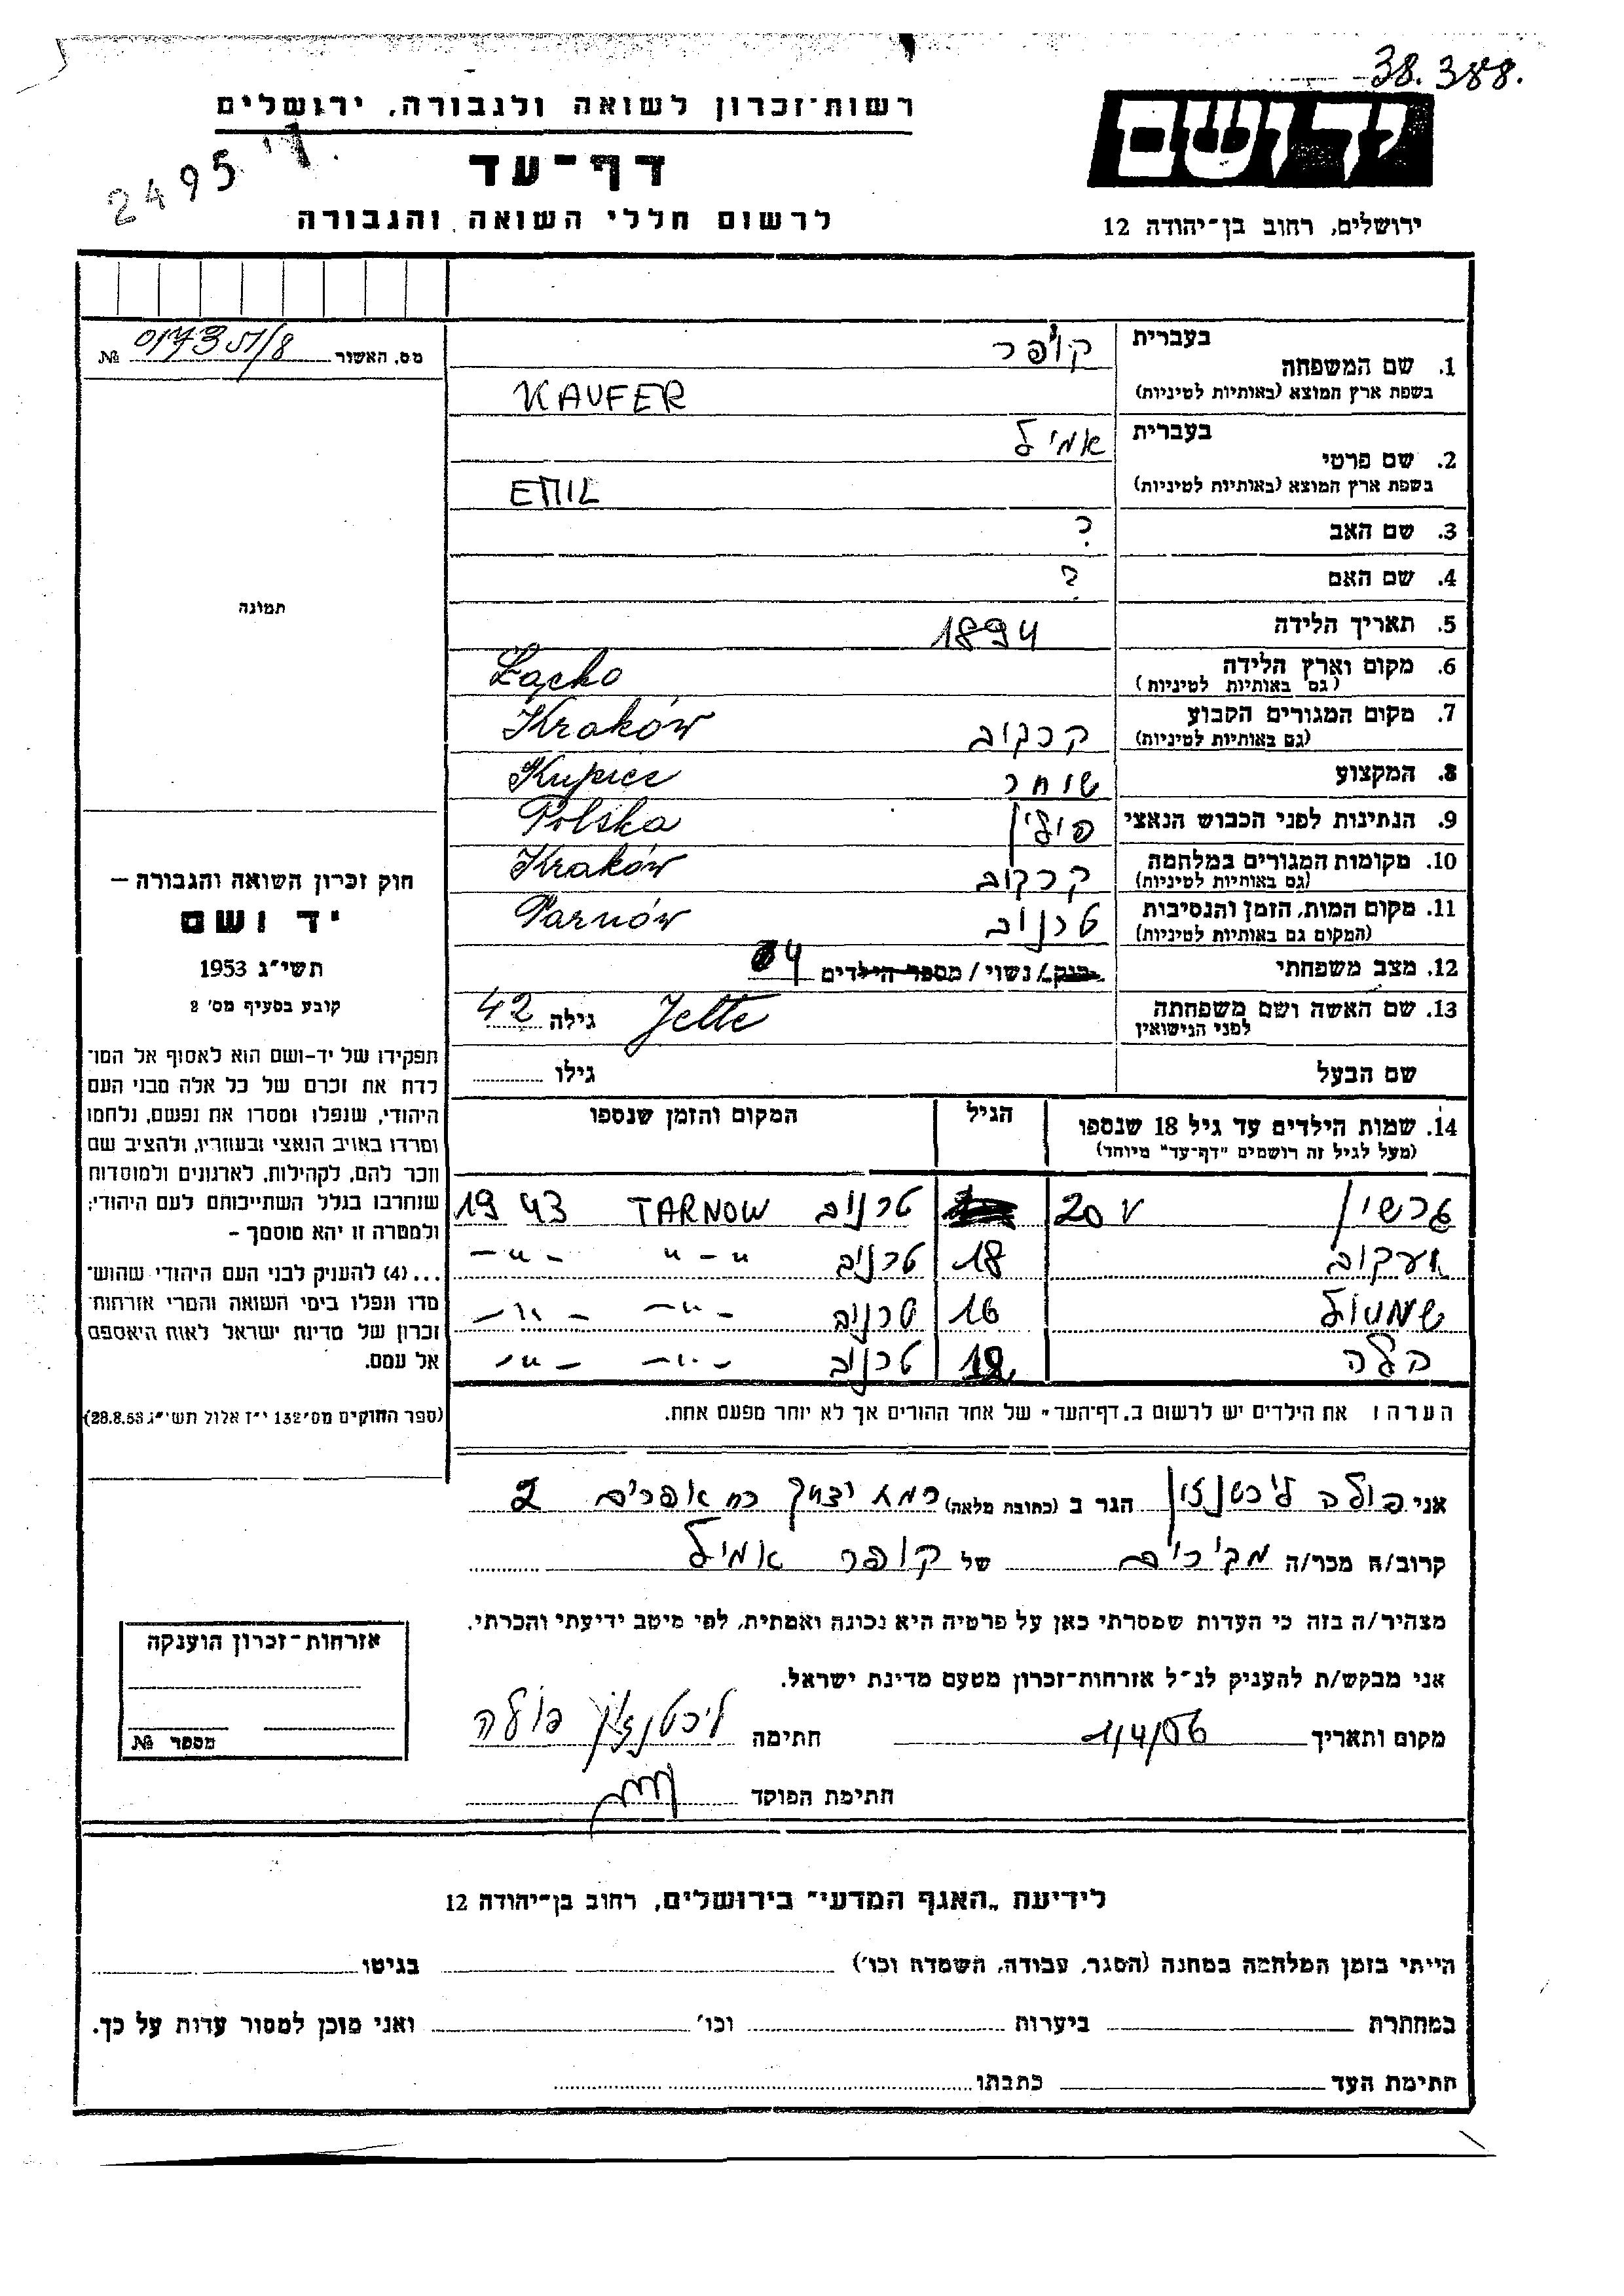 38.388.
רשות־זכרון לשואה ולגבורה, ירושלים
יד ושם
2495
דף־עד
לרשום חללי השואה והגבורה
ירושלים, רחוב בן־יהודה 12
מס. האשור №
בעברית
1. שם המשפחה
קופר
בשפת ארץ המוצא (באותיות לטיניות)
KAUFER
בעברית
2. שם פרטי
אמיל
בשפת ארץ המוצא (באותיות לטיניות)
EMIL
3. שם האב ?
4. שם האם ?
תמונה
5. תאריך הלידה 1894
6. מקום וארץ הלידה Łącko
(גם באותיות לטיניות)
7. מקום המגורים הקבוע קרקוב Kraków
(גם באותיות לטיניות)
8. המקצוע סוחר Kupiec
9. הנתינות לפני הכבוש הנאצי פולין Polska
10. מקומות המגורים במלחמה קרקוב Kraków
(גם באותיות לטיניות)
11. מקום המות, הזמן והנסיבות טרנוב Tarnów
(המקום גם באותיות לטיניות)
12. מצב משפחתי רווק / נשוי / מספר הילדים 4
13. שם האשה ושם משפחתה Jette גילה 42
לפני הנישואין
שם הבעל גילו
14. שמות הילדים עד גיל 18 שנספו הגיל המקום והזמן שנספו
(מעל לגיל זה רושמים "דף־עד" מיוחד)
גרשון 20 v טרנוב TARNOW 1943
יעקוב 18 טרנוב –"– –"–
שמואל 16 טרנוב –"– –"–
הלה טרנוב –"– –"–
חוק זכרון השואה והגבורה –
יד ושם
תשי"ג 1953
קובע בסעיף מס' 2
תפקידו של יד-ושם הוא לאסוף אל המו־
לדת את זכרם של כל אלה מבני העם
היהודי, שנפלו ומסרו את נפשם, נלחמו
ומרדו באויב הנאצי ובעוזריו, ולהציב שם
וזכר להם, לקהילות, לארגונים ולמוסדות
שנחרבו בגלל השתייכותם לעם היהודי;
ולמטרה זו יהא מוסמך –
...(4) להעניק לבני העם היהודי שהוש־
מדו ונפלו בימי השואה והמרי אזרחות־
זכרון של מדינת ישראל לאות היאספם
אל עמם.
(ספר החוקים מס' 132 י"ז אלול תשי"ג 28.8.53)
הערה: את הילדים יש לרשום ב„דף־העד" של אחד ההורים אך לא יותר מפעם אחת.
אני פולה ליכטנזון הגר ב (כתובת מלאה) רמת יצחק רח אפרים 2
קרוב/ה מכר/ה מכירים של קופר אמיל
מצהיר/ה בזה כי העדות שמסרתי כאן על פרטיה היא נכונה ואמתית, לפי מיטב ידיעתי והכרתי.
אני מבקש/ת להעניק לנ"ל אזרחות־זכרון מטעם מדינת ישראל.
מקום ותאריך 1/4/56 חתימה ליכטנזון פולה
חתימת הפוקד
אזרחות־זכרון הוענקה
מספר №
לידיעת „האגף המדעי" בירושלים, רחוב בן־יהודה 12
הייתי בזמן המלחמה במחנה (הסגר, עבודה, השמדה וכו') בגיטו
במחתרת ביערות וכו' ואני מוכן למסור עדות על כך.
חתימת העד כתבתו